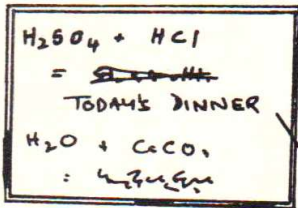 H₂SO₄ + HCl
=
TODAY'S DINNER
H₂O + CaCO₃
: